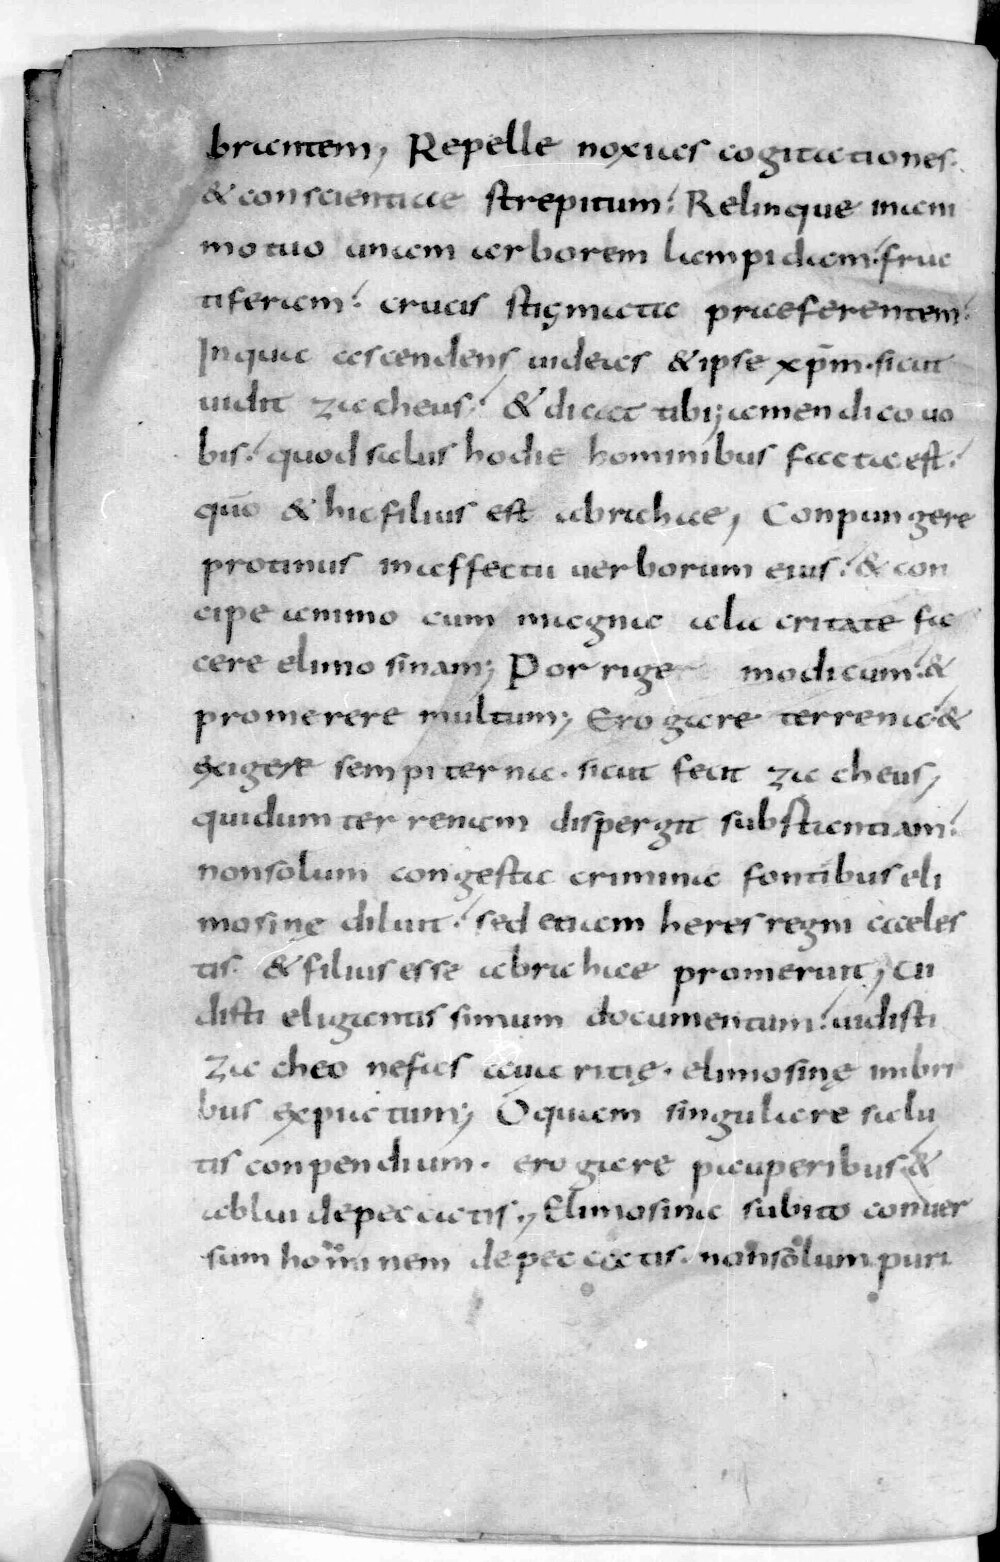 briantem; Repelle noxias cogitationes.
& conscientiae strepitum: Relinque in ani
mo tuo unam arborem lampidam: fruc
tiferam: crucis stigmata praeferentem:
In qua ascendens uideas & ipse xp̄m. sicut
uidit zacheus: & dicat tibi; amen dico uo
bis: quod salus hodie hominibus facta est:
quō & hic filius est abrahae; Conpungere
protinus in affectu uerborum eius: & con
cipe animo cum magna alacritate fa
cere elimosinam; Porriger modicum: &
promerere multum; Erogare terrena: &
exigere sempiterna. sicut fecit zacheus;
qui dum terrenam dispergit substantiam:
non solum congesta crimina fontibus eli
mosinę diluit: sed etiam heres regni caeles
tis. & filius esse abrahae promeruit; Au
disti eligantissimum documentum: uidisti
zacheo nefas auaritię. elimosinę imbri
bus expiatum; O quam singulare salu
tis conpendium. erogare pauperibus: &
ablui de peccatis; Elimosina subito conuer
sum hominem de peccatis. non solum puri